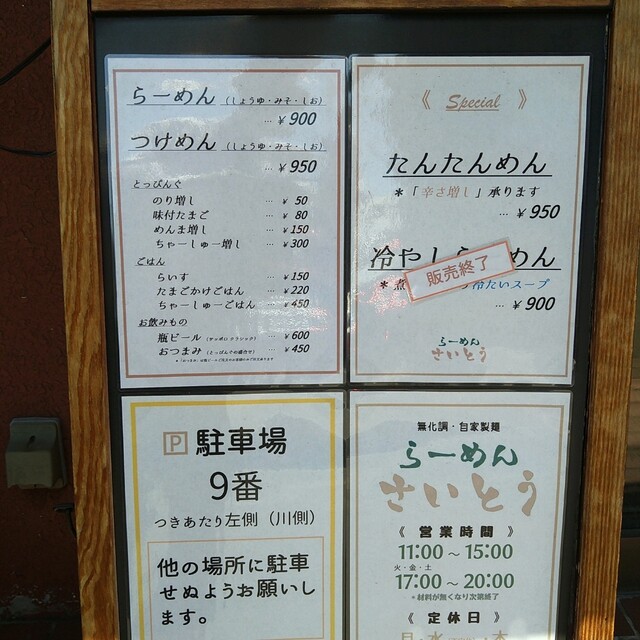 らーめん (しょうゆ・みそ・しお)
… ¥900
つけめん (しょうゆ・みそ・しお)
… ¥950
とっぴんぐ
のり増し … ¥ 50
味付たまご … ¥ 80
めんま増し … ¥150
ちゃーしゅー増し … ¥300
ごはん
らいす … ¥150
たまごかけごはん … ¥220
ちゃーしゅーごはん … ¥450
お飲みもの
瓶ビール (サッポロ クラシック) … ¥600
おつまみ (とっぴんぐの盛合せ) … ¥450
《 Special 》
たんたんめん
＊「辛さ増し」承ります
… ¥950
冷やしらーめん
販売終了
＊煮 冷たいスープ
… ¥900
らーめん
さいとう
P 駐車場
9番
つきあたり左側（川側）
他の場所に駐車
せぬようお願いし
ます。
無化調・自家製麺
らーめん
さいとう
《 営業時間 》
11:00～15:00
火・金・土
17:00～20:00
＊材料が無くなり次第終了
《 定休日 》